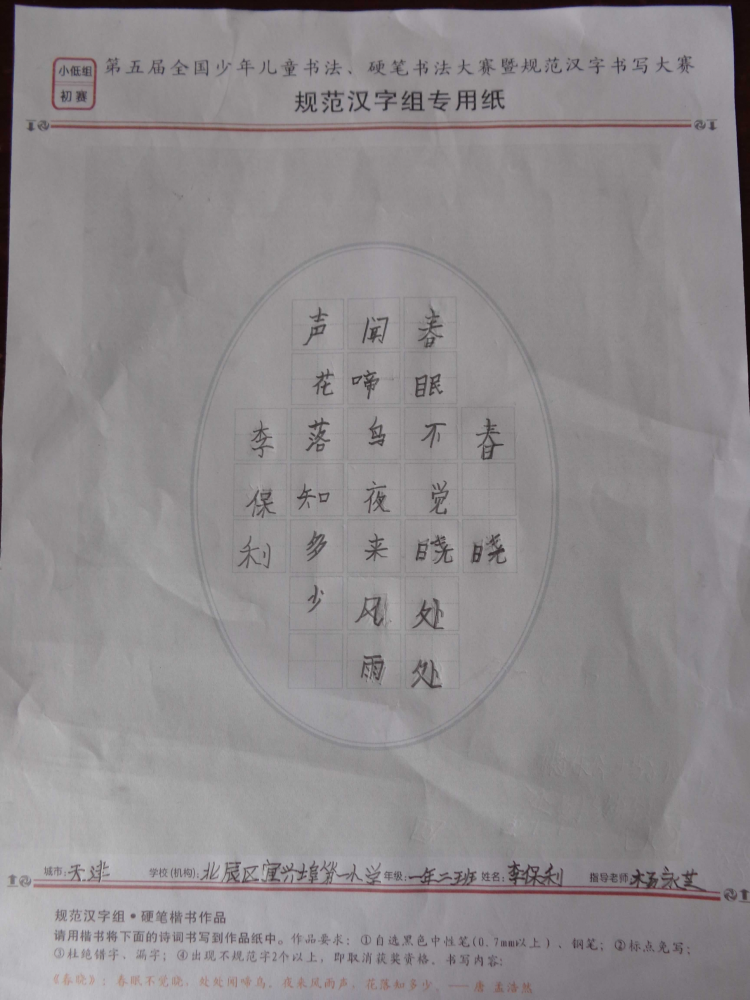 小低组
初赛
第五届全国少年儿童书法、硬笔书法大赛暨规范汉字书写大赛
规范汉字组专用纸
春晓
春眠不觉晓处处
闻啼鸟夜来风雨
声花落知多少
李保利
城市：天津 学校(机构)：北辰区宜兴埠第一小学 年级：一年二班 姓名：李保利 指导老师 杨家芝
规范汉字组·硬笔楷书作品
请用楷书将下面的诗词书写到作品纸中。作品要求：①自选黑色中性笔(0.7mm以上)、钢笔；②标点免写；
③杜绝错字、漏字；④出现不规范字2个以上，即取消获奖资格。书写内容：
《春晓》：春眠不觉晓，处处闻啼鸟。夜来风雨声，花落知多少。——唐 孟浩然